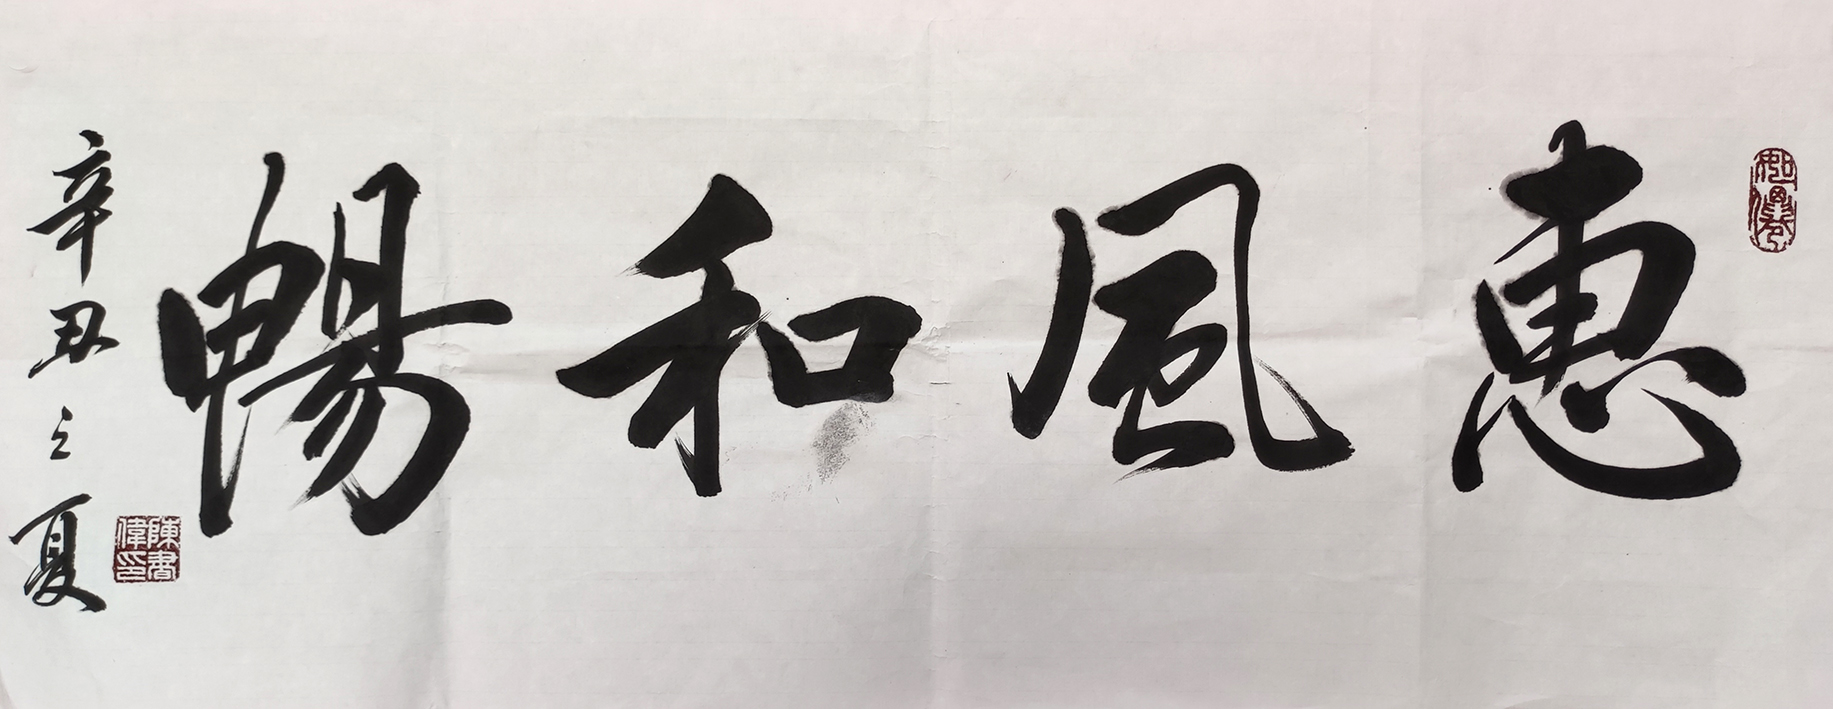 惠風和暢
辛丑之夏
陳書偉印